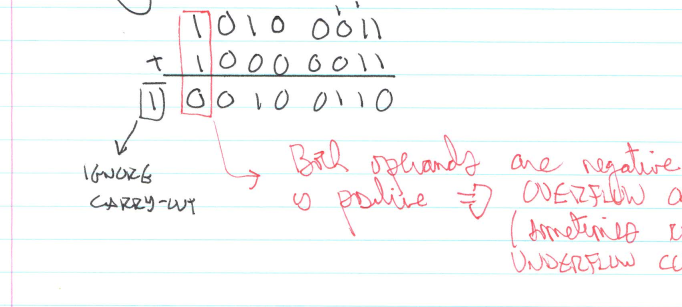 1 1
1010 0011
+ 1000 0011
1 0010 0110
IGNORE
CARRY-OUT
Both operands are negative
is positive ⇒ OVERFLOW
(sometimes
UNDERFLOW